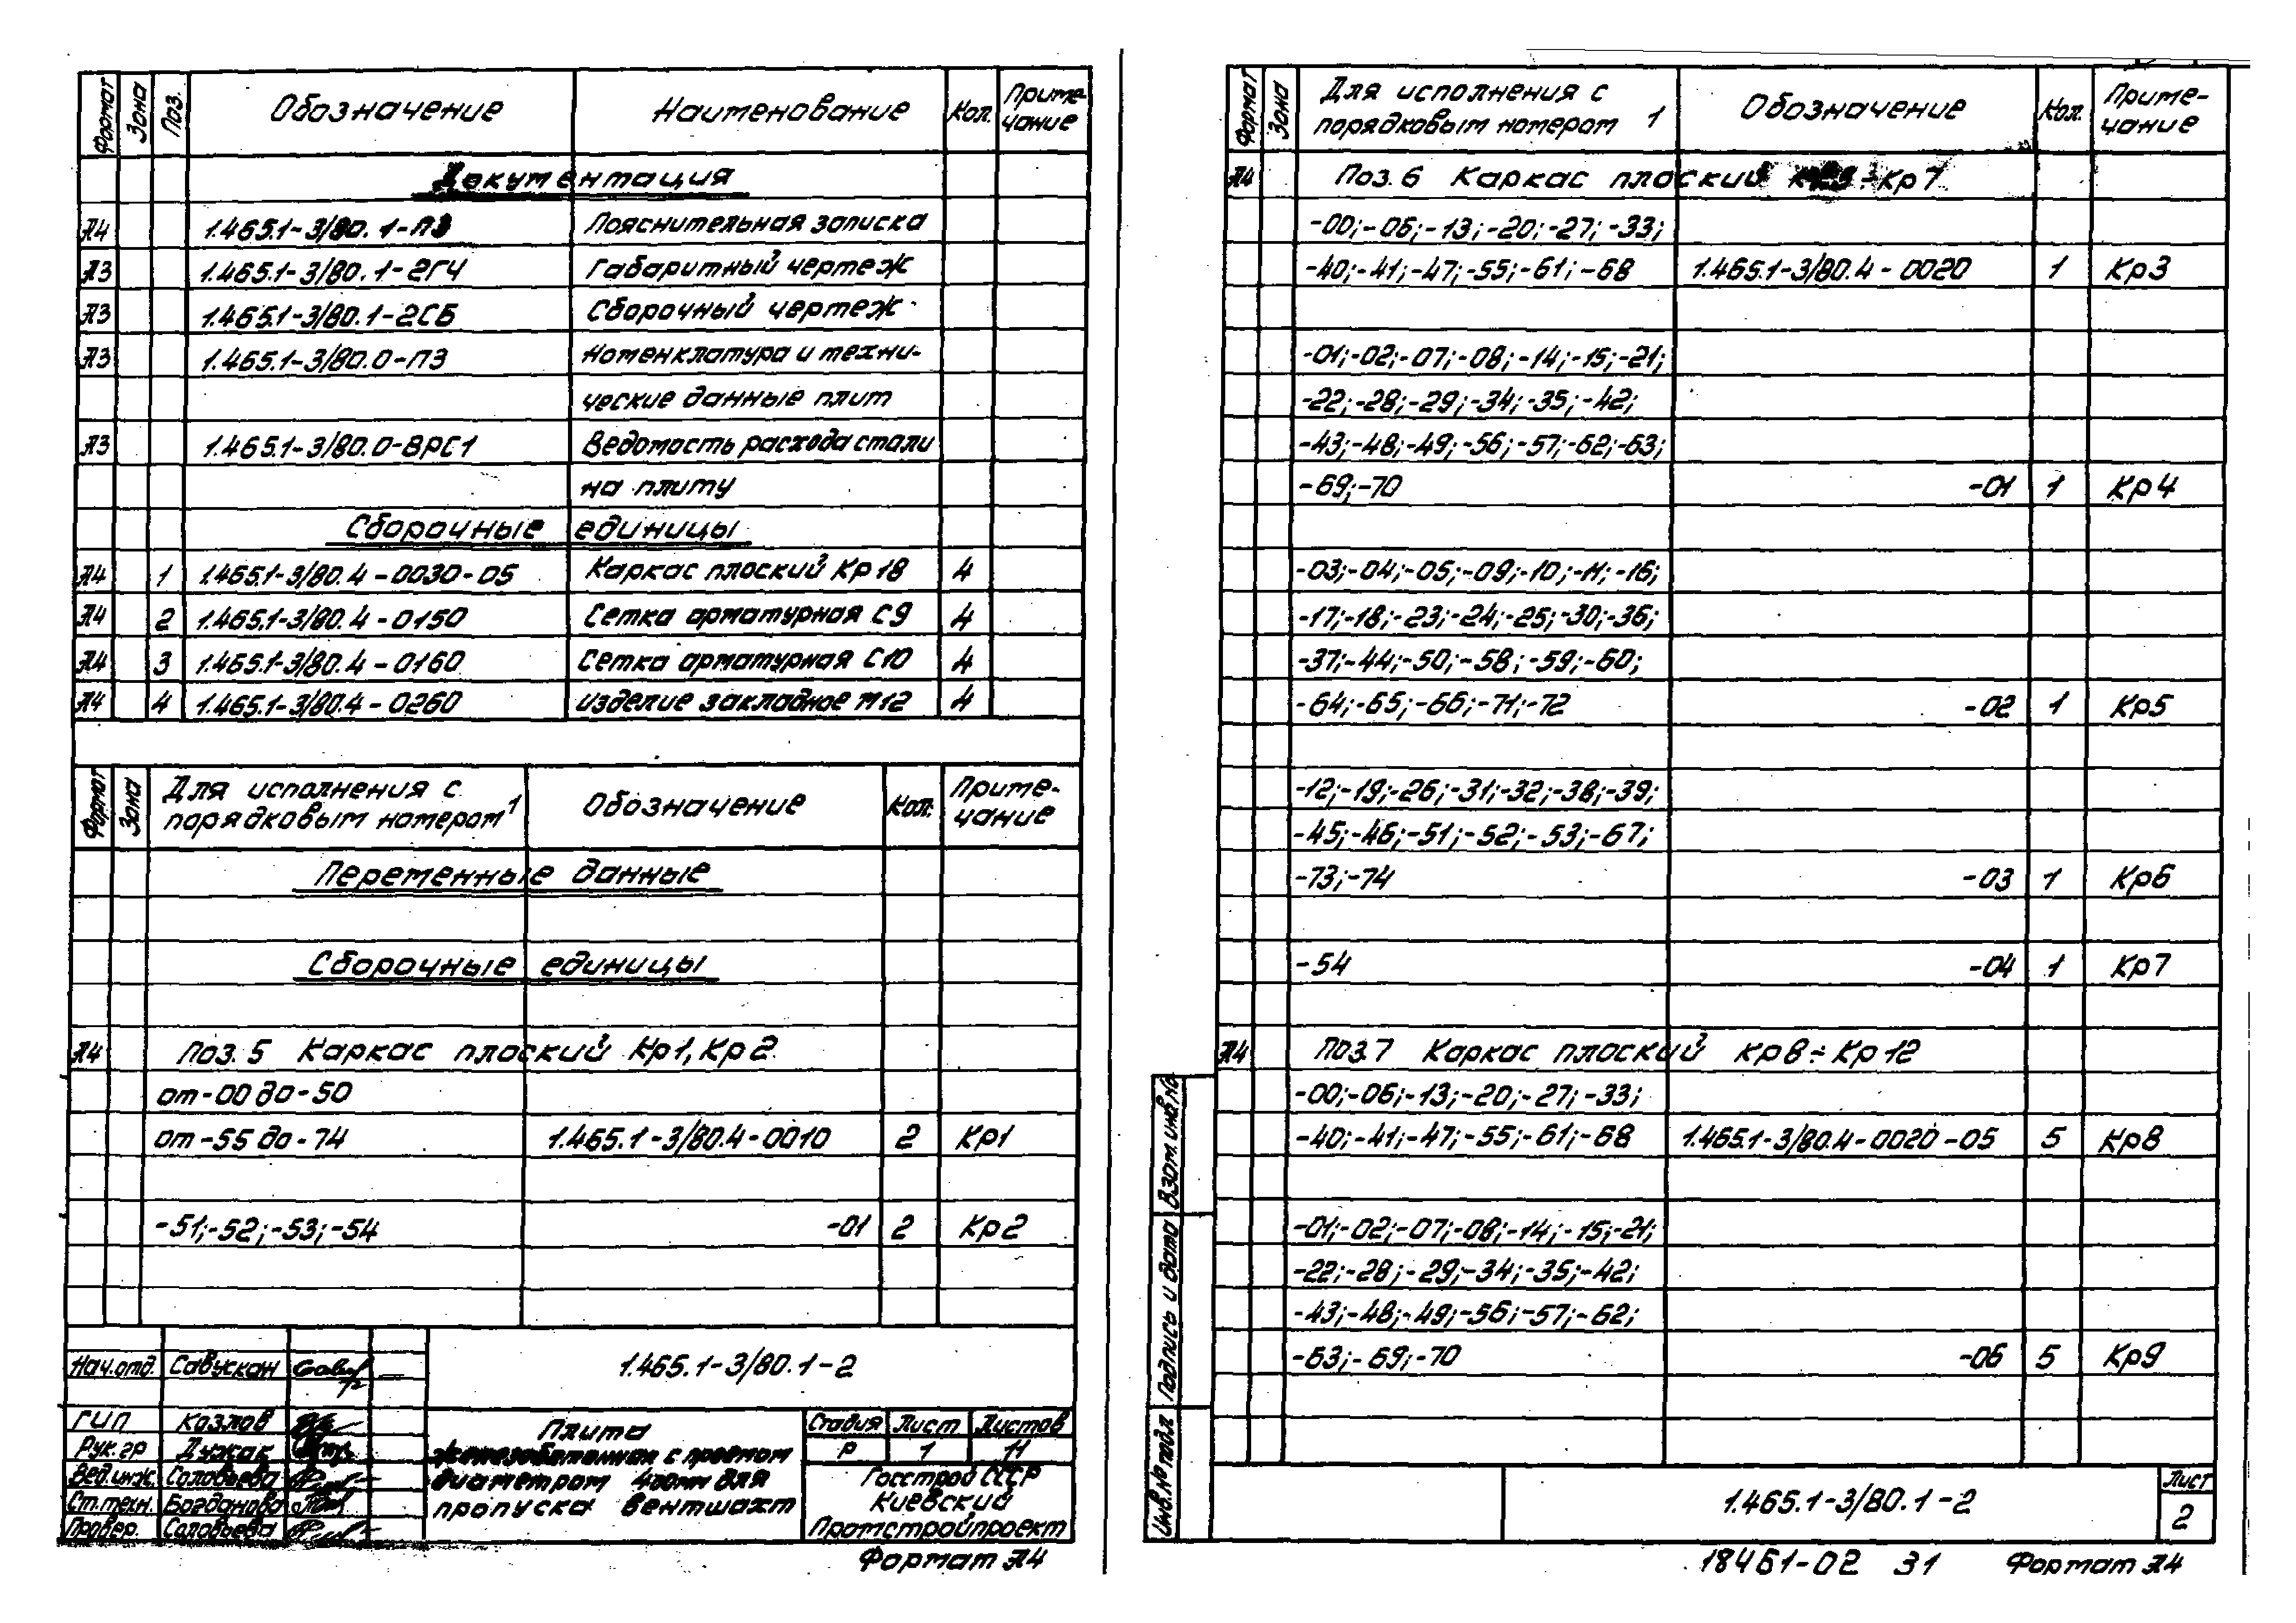 Формат Зона Поз. Обозначение Наименование Кол. Приме-
чание
Документация
А4 1.465.1-3/80.1-ПЗ Пояснительная записка
А3 1.465.1-3/80.1-2ГЧ Габаритный чертеж
А3 1.465.1-3/80.1-2СБ Сборочный чертеж
А3 1.465.1-3/80.0-ПЗ Номенклатура и техни-
ческие данные плит
А3 1.465.1-3/80.0-ВРС1 Ведомость расхода стали
на плиту
Сборочные единицы
А4 1 1.465.1-3/80.4-0030-05 Каркас плоский Кр18 4
А4 2 1.465.1-3/80.4-0150 Сетка арматурная С9 4
А4 3 1.465.1-3/80.4-0160 Сетка арматурная С10 4
А4 4 1.465.1-3/80.4-0260 изделие закладное М12 4
Формат Зона Для исполнения с
порядковым номером 1 Обозначение Кол. Приме-
чание
Переменные данные
Сборочные единицы
А4 Поз. 5 Каркас плоский Кр1, Кр2
от-00 до-50
от-55 до-74 1.465.1-3/80.4-0010 2 Кр1
-51;-52;-53;-54 -01 2 Кр2
Нач.отд. Савускан
1.465.1-3/80.1-2
ГИП Козлов
Рук.гр Дужак
Вед.инж. Соловьева
Ст.техн. Богданова
Провер. Соловьева
Плита
железобетонная с проемом
диаметром 400мм для
пропуска вентшахт
Стадия Лист Листов
Р 1 11
Госстрой СССР
Киевский
Промстройпроект
Формат А4
Формат Зона Для исполнения с
порядковым номером 1 Обозначение Кол. Приме-
чание
А4 Поз. 6 Каркас плоский ÷Кр7
-00;-06;-13;-20;-27;-33;
-40;-41;-47;-55;-61;-68 1.465.1-3/80.4-0020 1 Кр3
-01;-02;-07;-08;-14;-15;-21;
-22;-28;-29;-34;-35;-42;
-43;-48;-49;-56;-57;-62;-63;
-69;-70 -01 1 Кр4
-03;-04;-05;-09;-10;-11;-16;
-17;-18;-23;-24;-25;-30;-36;
-37;-44;-50;-58;-59;-60;
-64;-65;-66;-71;-72 -02 1 Кр5
-12;-19;-26;-31;-32;-38;-39;
-45;-46;-51;-52;-53;-67;
-73;-74 -03 1 Кр6
-54 -04 1 Кр7
А4 Поз.7 Каркас плоский Кр8÷Кр12
-00;-06;-13;-20;-27;-33;
-40;-41;-47;-55;-61;-68 1.465.1-3/80.4-0020-05 5 Кр8
-01;-02;-07;-08;-14;-15;-21;
-22;-28;-29;-34;-35;-42;
-43;-48;-49;-56;-57;-62;
-63;-69;-70 -06 5 Кр9
Взам.инв.№
Подпись и дата
Инв.№подл
1.465.1-3/80.1-2
Лист
2
18461-02 31 Формат А4